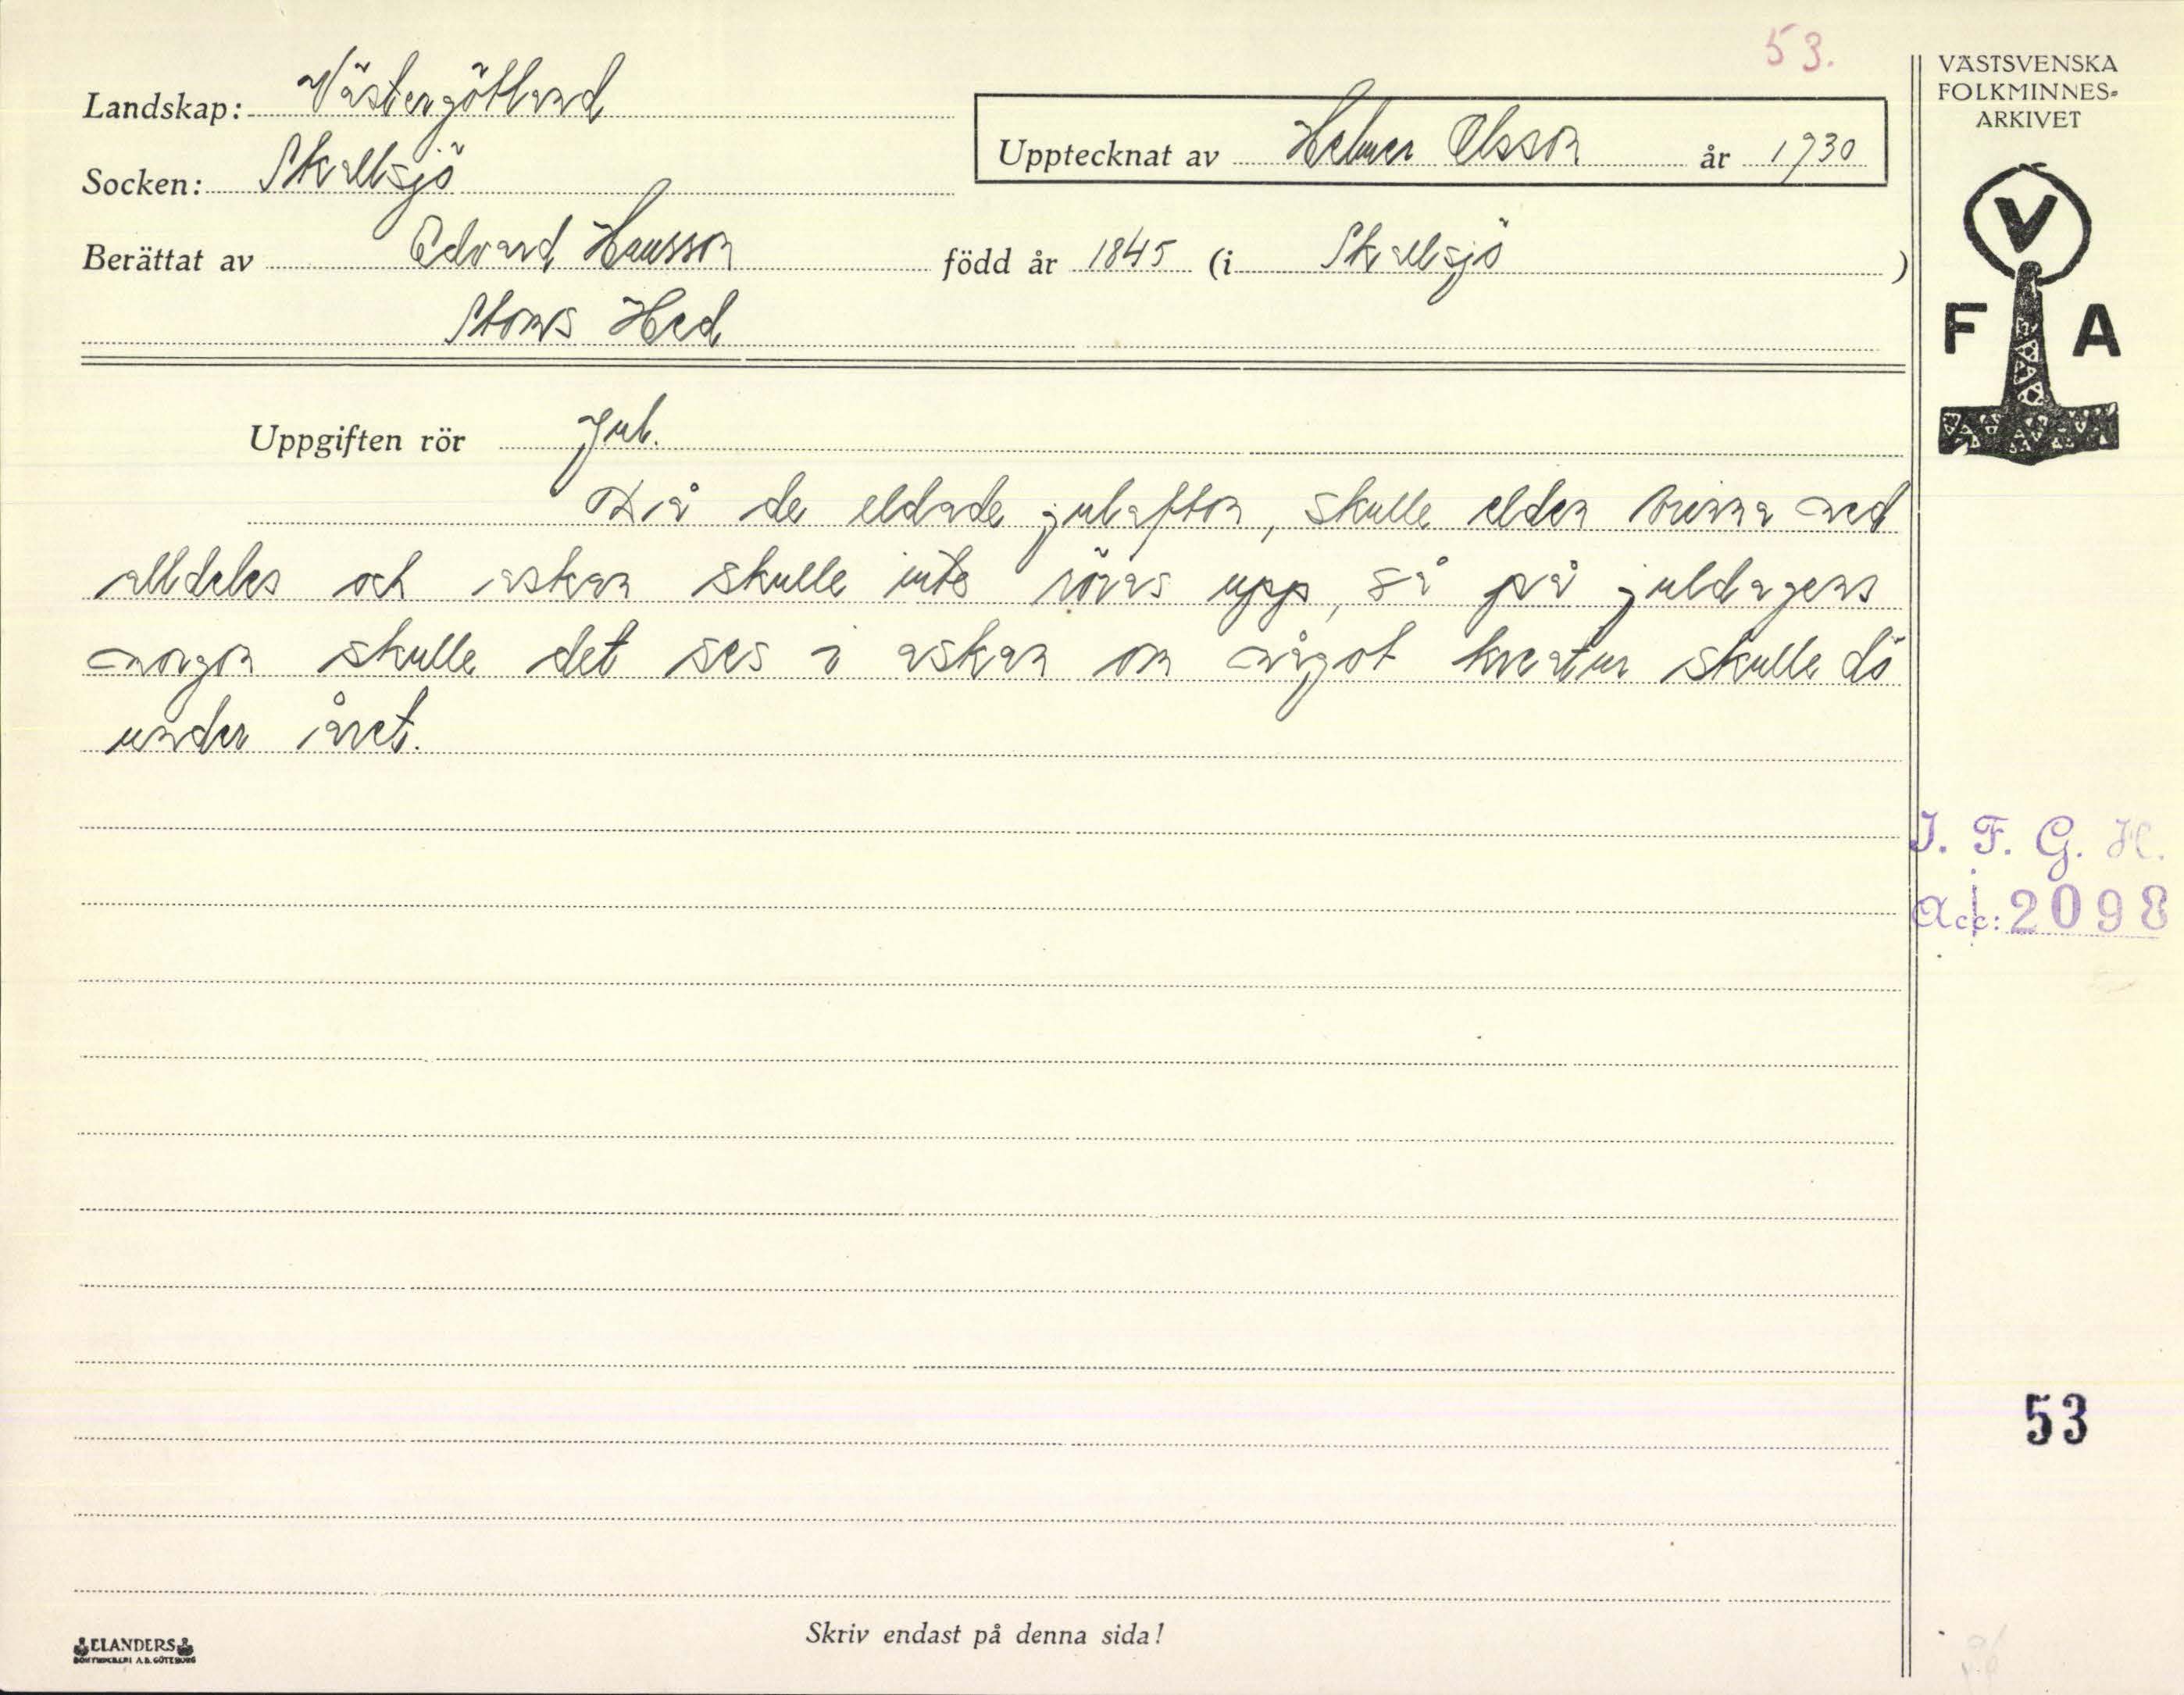 53.
Landskap: Västergötland
Socken: Skallsjö
Upptecknat av Helmer Olsson år 1930
Berättat av Edvard Hansson född år 1845 (i Skallsjö)
Stoms Hed
Uppgiften rör Jul.
Då de eldade julafton, skulle elden brinna ned
alldeles och askan skulle inte röras upp, så på juldagens
morgon skulle det ses i askan om något kreatur skulle dö
under året.
Skriv endast på denna sida!
ELANDERS
BOKTRYCKERI A.B. GÖTEBORG
VÄSTSVENSKA
FOLKMINNES-
ARKIVET
V
F A
I. F. G. H.
Acc: 2098
53